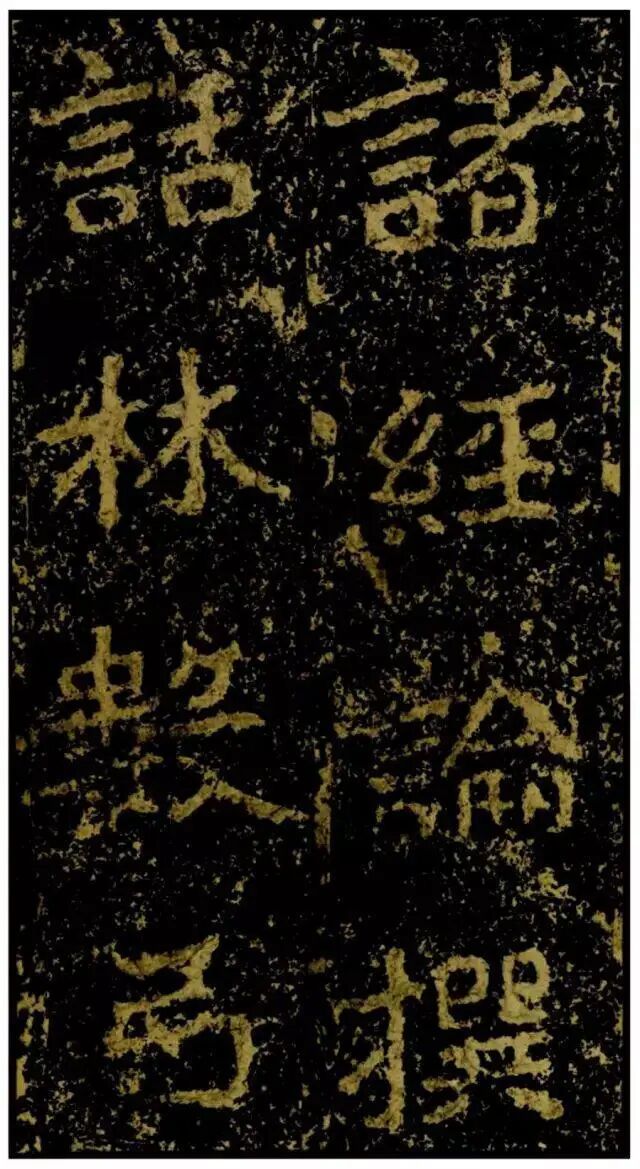 諸經論撰
話林數